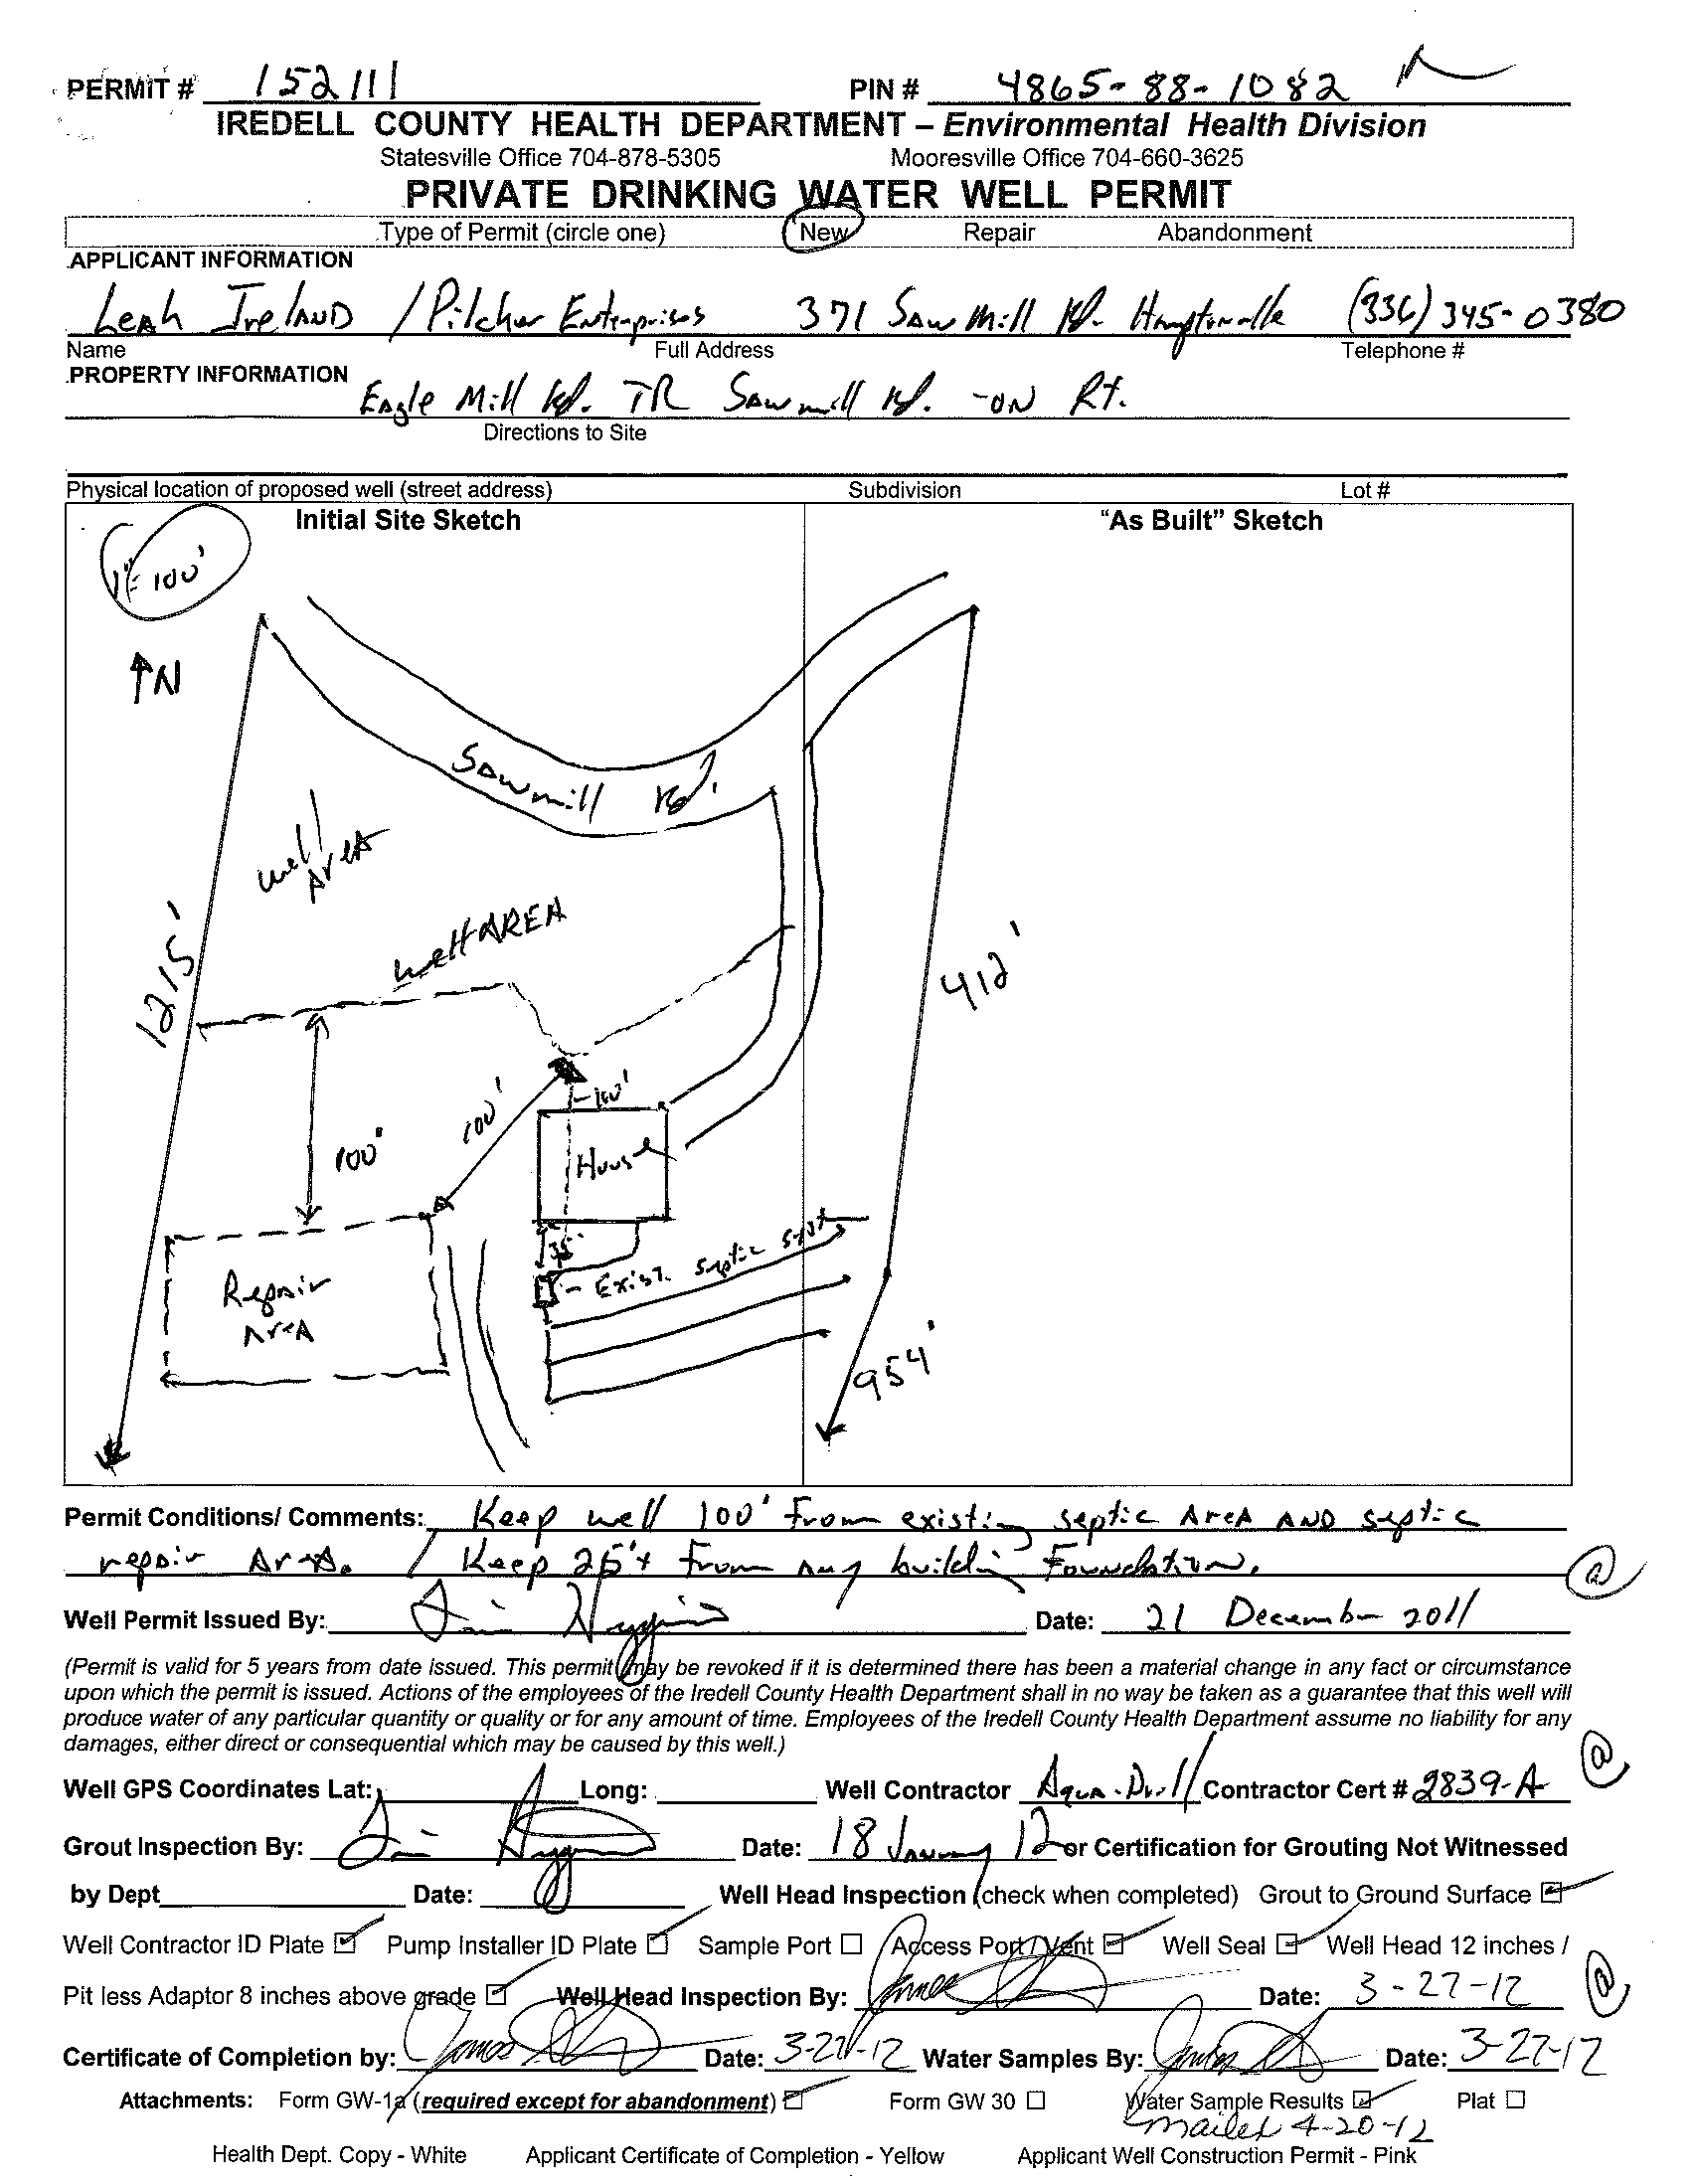 PERMIT # 152111 PIN # 4865-88-1082
IREDELL COUNTY HEALTH DEPARTMENT – Environmental Health Division
Statesville Office 704-878-5305 Mooresville Office 704-660-3625
PRIVATE DRINKING WATER WELL PERMIT
Type of Permit (circle one) New Repair Abandonment
APPLICANT INFORMATION
Leah Ireland / Pilcher Enterprises 371 Sawmill Rd. Hamptonville (336) 345-0380
Name Full Address Telephone #
PROPERTY INFORMATION
Eagle Mill Rd. TR Sawmill Rd. -on Rt.
Directions to Site
Physical location of proposed well (street address) Subdivision Lot #
Initial Site Sketch "As Built" Sketch
1" = 100'
↑N
Sawmill Rd.
well Area
well AREA
1215'
412'
100'
100'
-100'
House
35'
- Exist. Septic Syst
Repair Area
954'
Permit Conditions/ Comments: Keep well 100' from existing septic Area AND septic
repair Area. / Keep 25'+ from any building Foundation.
Well Permit Issued By: Date: 21 December 2011
(Permit is valid for 5 years from date issued. This permit may be revoked if it is determined there has been a material change in any fact or circumstance
upon which the permit is issued. Actions of the employees of the Iredell County Health Department shall in no way be taken as a guarantee that this well will
produce water of any particular quantity or quality or for any amount of time. Employees of the Iredell County Health Department assume no liability for any
damages, either direct or consequential which may be caused by this well.)
Well GPS Coordinates Lat: Long: Well Contractor Aqua-Drill Contractor Cert # 2839-A
Grout Inspection By: Date: 18 January 12 or Certification for Grouting Not Witnessed
by Dept Date: Well Head Inspection (check when completed) Grout to Ground Surface ☑
Well Contractor ID Plate ☑ Pump Installer ID Plate ☑ Sample Port ☐ Access Port / Vent ☑ Well Seal ☑ Well Head 12 inches /
Pit less Adaptor 8 inches above grade ☑ Well Head Inspection By: Date: 3-27-12
Certificate of Completion by: Date: 3-27-12 Water Samples By: Date: 3-27-12
Attachments: Form GW-1a (required except for abandonment) ☑ Form GW 30 ☐ Water Sample Results ☑ Plat ☐
mailed 4-20-12
Health Dept. Copy - White Applicant Certificate of Completion - Yellow Applicant Well Construction Permit - Pink